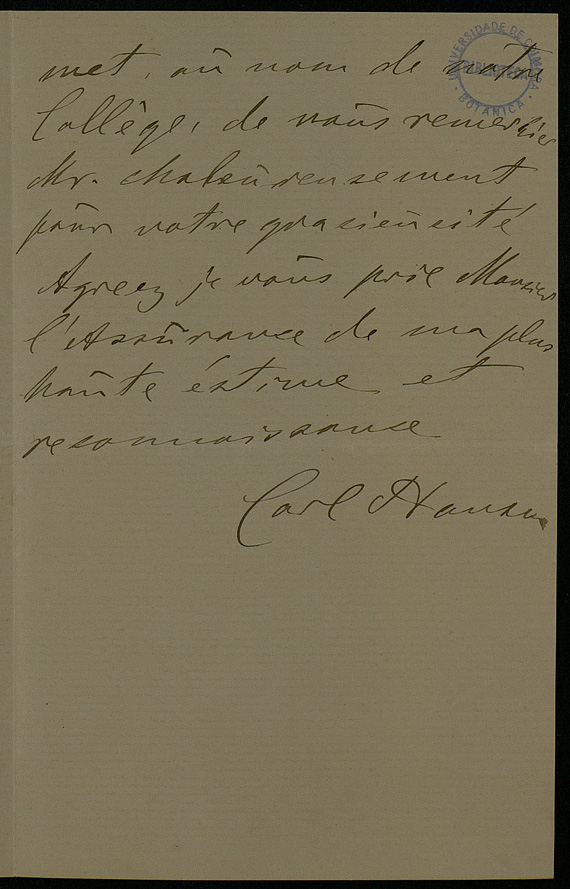 met, au nom de notre
Collège, de vous remercier
Mr. chaleureusement
pour votre grasieusité
Agreez je vous prie Monsieur
l'Assurance de ma plus
haute éstime et
reconnaissance
Carl Hansen
UNIVERSIDADE DE COIMBRA
BIBLIOTHECA
BOTANICA